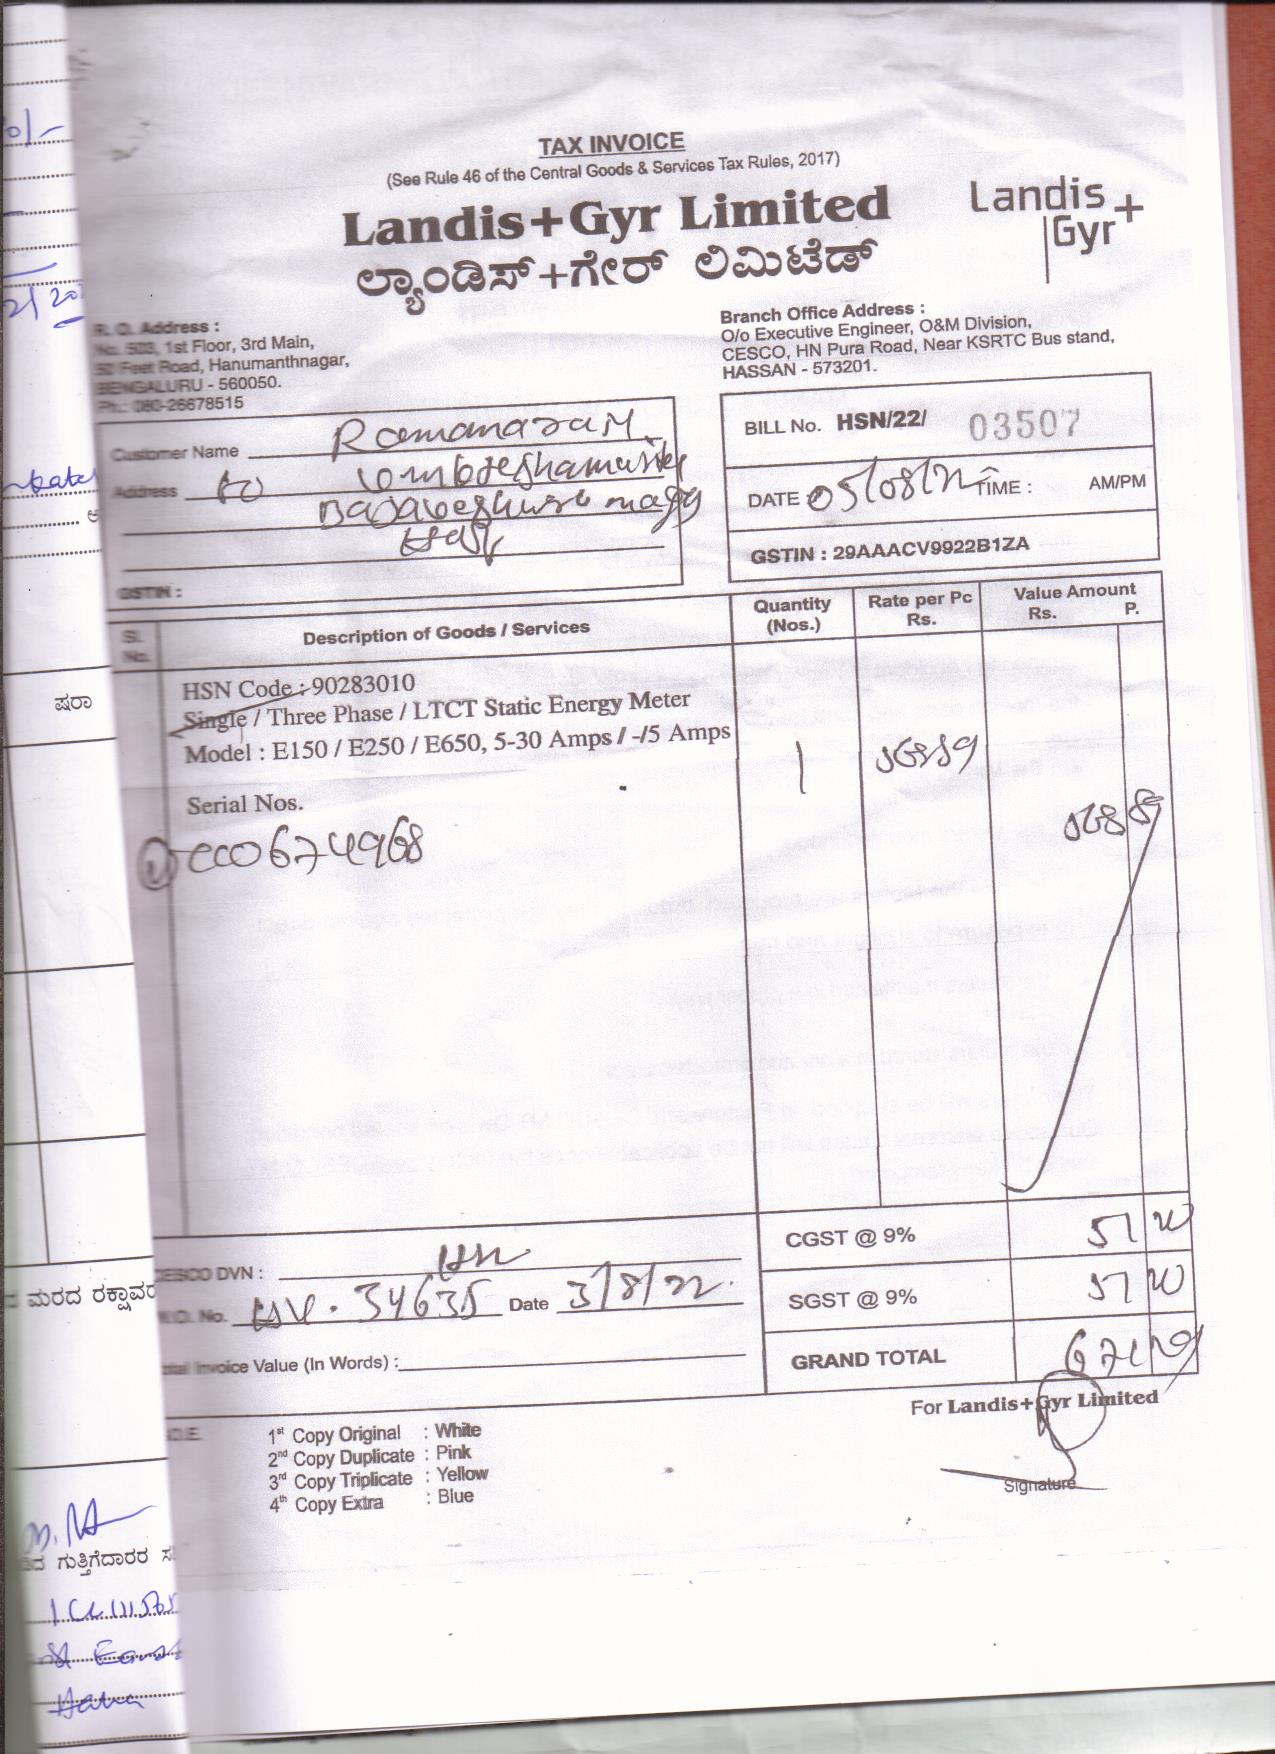 TAX INVOICE
(See Rule 46 of the Central Goods & Services Tax Rules, 2017)
Landis+Gyr Limited
Landis
Gyr+
ಲ್ಯಾಂಡಿಸ್+ಗೇರ್ ಲಿಮಿಟೆಡ್
R. O. Address :
No. 503, 1st Floor, 3rd Main,
50 Feet Road, Hanumanthnagar,
BENGALURU - 560050.
Ph.: 080-26678515
Branch Office Address :
O/o Executive Engineer, O&M Division,
CESCO, HN Pura Road, Near KSRTC Bus stand,
HASSAN - 573201.
Customer Name
Address
GSTIN :
BILL No. HSN/22/ 03507
DATE : 05/08/22 TIME : AM/PM
GSTIN : 29AAACV9922B1ZA
Sl. No. Description of Goods / Services Quantity (Nos.) Rate per Pc Rs. Value Amount Rs. P.
HSN Code : 90283010
Single / Three Phase / LTCT Static Energy Meter
Model : E150 / E250 / E650, 5-30 Amps / -/5 Amps
1
Serial Nos.
674968
CESCO DVN : HSN
No. 34635 Date 3/8/22.
Total Invoice Value (In Words) :
CGST @ 9% 51
SGST @ 9% 51
GRAND TOTAL 671
For Landis+Gyr Limited
Signature
1st Copy Original : White
2nd Copy Duplicate : Pink
3rd Copy Triplicate : Yellow
4th Copy Extra : Blue
ಷರಾ
ಮರದ
ಗುತ್ತಿಗೆದಾರರ